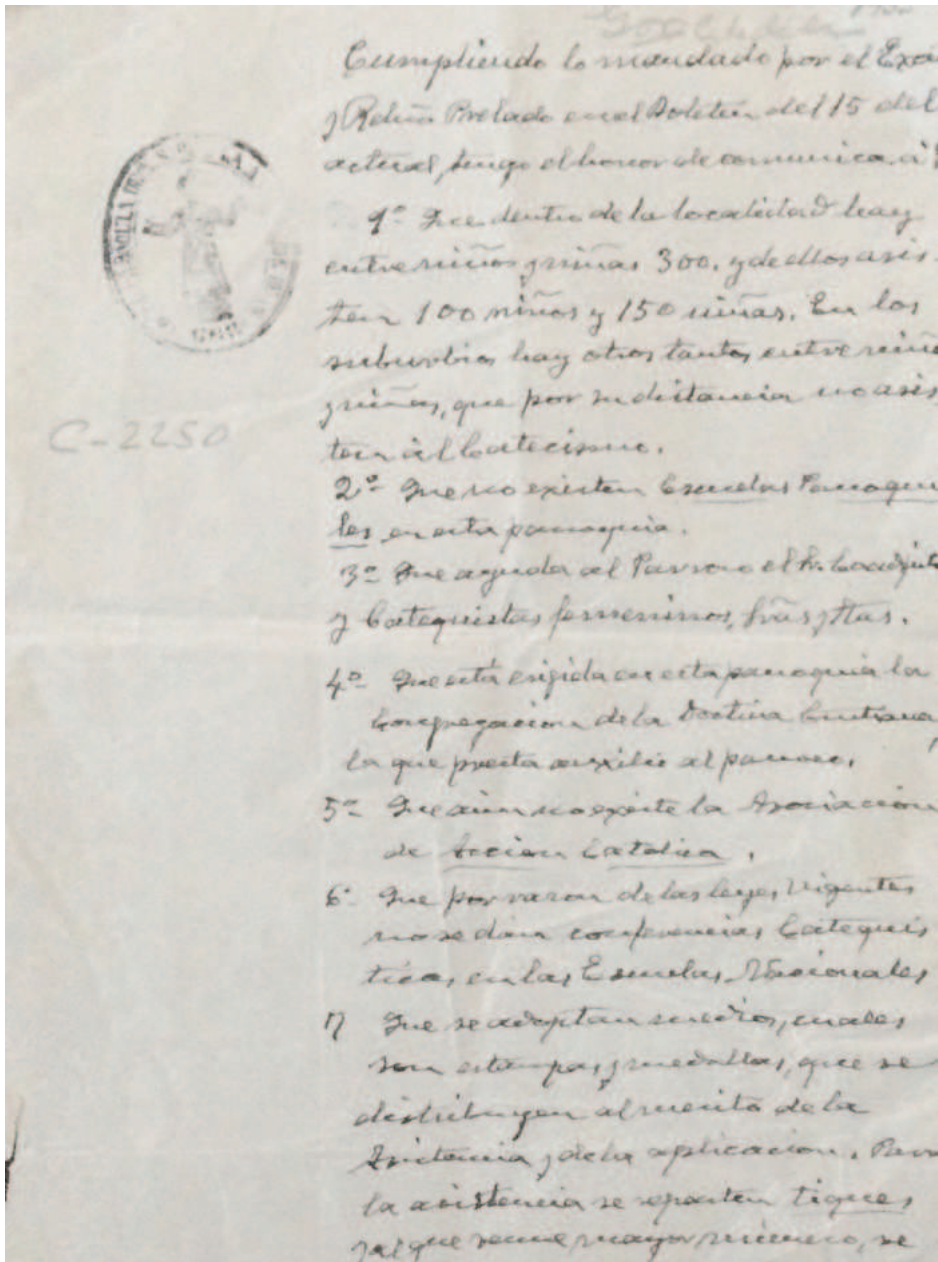 Cumpliendo lo mandado por el Exc
y Rdmo Prelado en el Boletin del 15 del
actual, tengo el honor de comunicar á
1º Que dentro de la localidad hay
entre niños y niñas 300, y de ellos asis
ten 100 niños y 150 niñas. En los
suburbios hay otros tantos entre niño
y niñas, que por su distancia no asis
ten al Catecismo.
C-2250
2º Que no existen Escuelas Parroquia
les en esta parroquia.
3º Que ayuda al Parroco el Sr. Coadjuto
y Catequistas femeninos, Sras y Stas.
4º Que está erigida en esta parroquia la
Congregacion de la Doctina Cristiana,
la que presta auxilio al parroco.
5º Que aún no existe la Asociacion
de Accion Catolica.
6º Que por razon de las leyes vigentes
no se dan conferencias Catequis
ticas en las Escuelas Nacionales
7 Que se adoptan medios, cuales
son estampas y medallas, que se
distribuyen al merito de la
Asistencia y de la aplicacion. Para
la asistencia se reparten tiques
y al que reune mayor numero, se